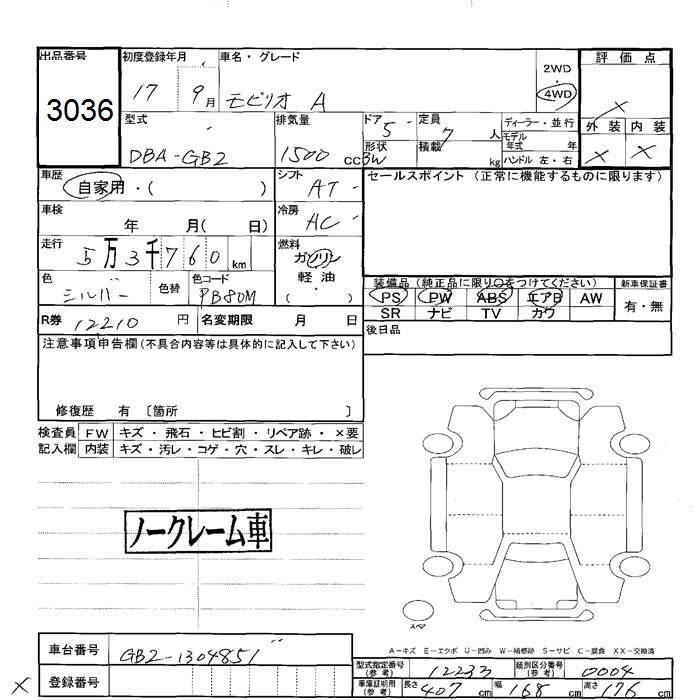 出品番号
3036
初度登録年月
17 9月
車名・グレード
モビリオ A
2WD
・
4WD
評価点
×
外装 内装
× ×
型式
DBA-GB2
排気量
1500 cc
ドア
5
形状
3W
定員
7 人
積載
kg
ディーラー・並行
モデル
年式 年
ハンドル 左・右
車歴
自家用・( )
シフト
AT
セールスポイント (正常に機能するものに限ります)
車検
年 月( 日)
冷房
AC
走行
5万3千760 km
燃料
ガソリン
軽油
( )
色
シルバー
色替
色コード
PB80M
装備品 (純正品に限り○をつけてください)
PS PW ABS エアB AW
SR ナビ TV カワ
新車保証書
有・無
R券 12210 円
名変期限 月 日
後日品
注意事項申告欄(不具合内容等は具体的に記入して下さい)
修復歴 有 〔箇所 〕
検査員 FW キズ・飛石・ヒビ割・リペア跡・×要
記入欄 内装 キズ・汚レ・コゲ・穴・スレ・キレ・破レ
ノークレーム車
スペア
A-キズ E-エクボ U-凹み W-補修跡 S-サビ C-腐食 XX-交換済
車台番号
GB2-1304851
× 登録番号
型式指定番号
(参考)
12233
類別区分番号
(参考)
0004
車庫証明用
(参考)
長さ 407 cm 幅 168 cm 高さ 176 cm